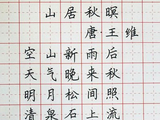 山居秋暝
唐·王维
空山新雨后
天气晚来秋
明月松间照
清泉石上流